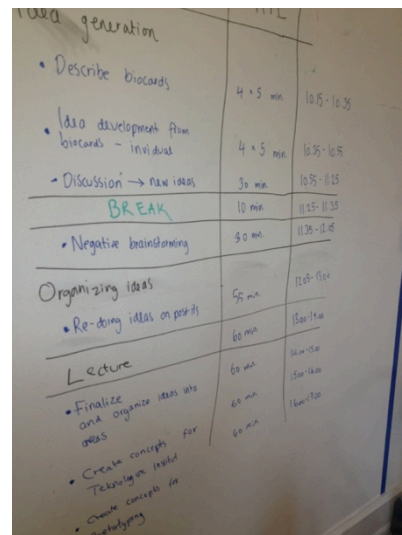 Idea generation
• Describe biocards 4 × 5 min 10.15 - 10.35
• Idea development from
biocards - invidual 4 × 5 min 10.35 - 10.55
• Discussion → new ideas 30 min 10.55 - 11.25
BREAK 10 min 11.25 - 11.35
• Negative brainstorming 30 min 11.35 - 12.05
Organizing ideas 55 min 12.05 - 13.00
• Re-doing ideas on postits 60 min 13.00 - 14.00
Lecture 60 min 14.00 - 15.00
• Finalize
and organize ideas into
areas 60 min 15.00 - 16.00
• Create concepts for
Teknologisk Institut 60 min 16.00 - 17.00
• Create concepts for
prototyping